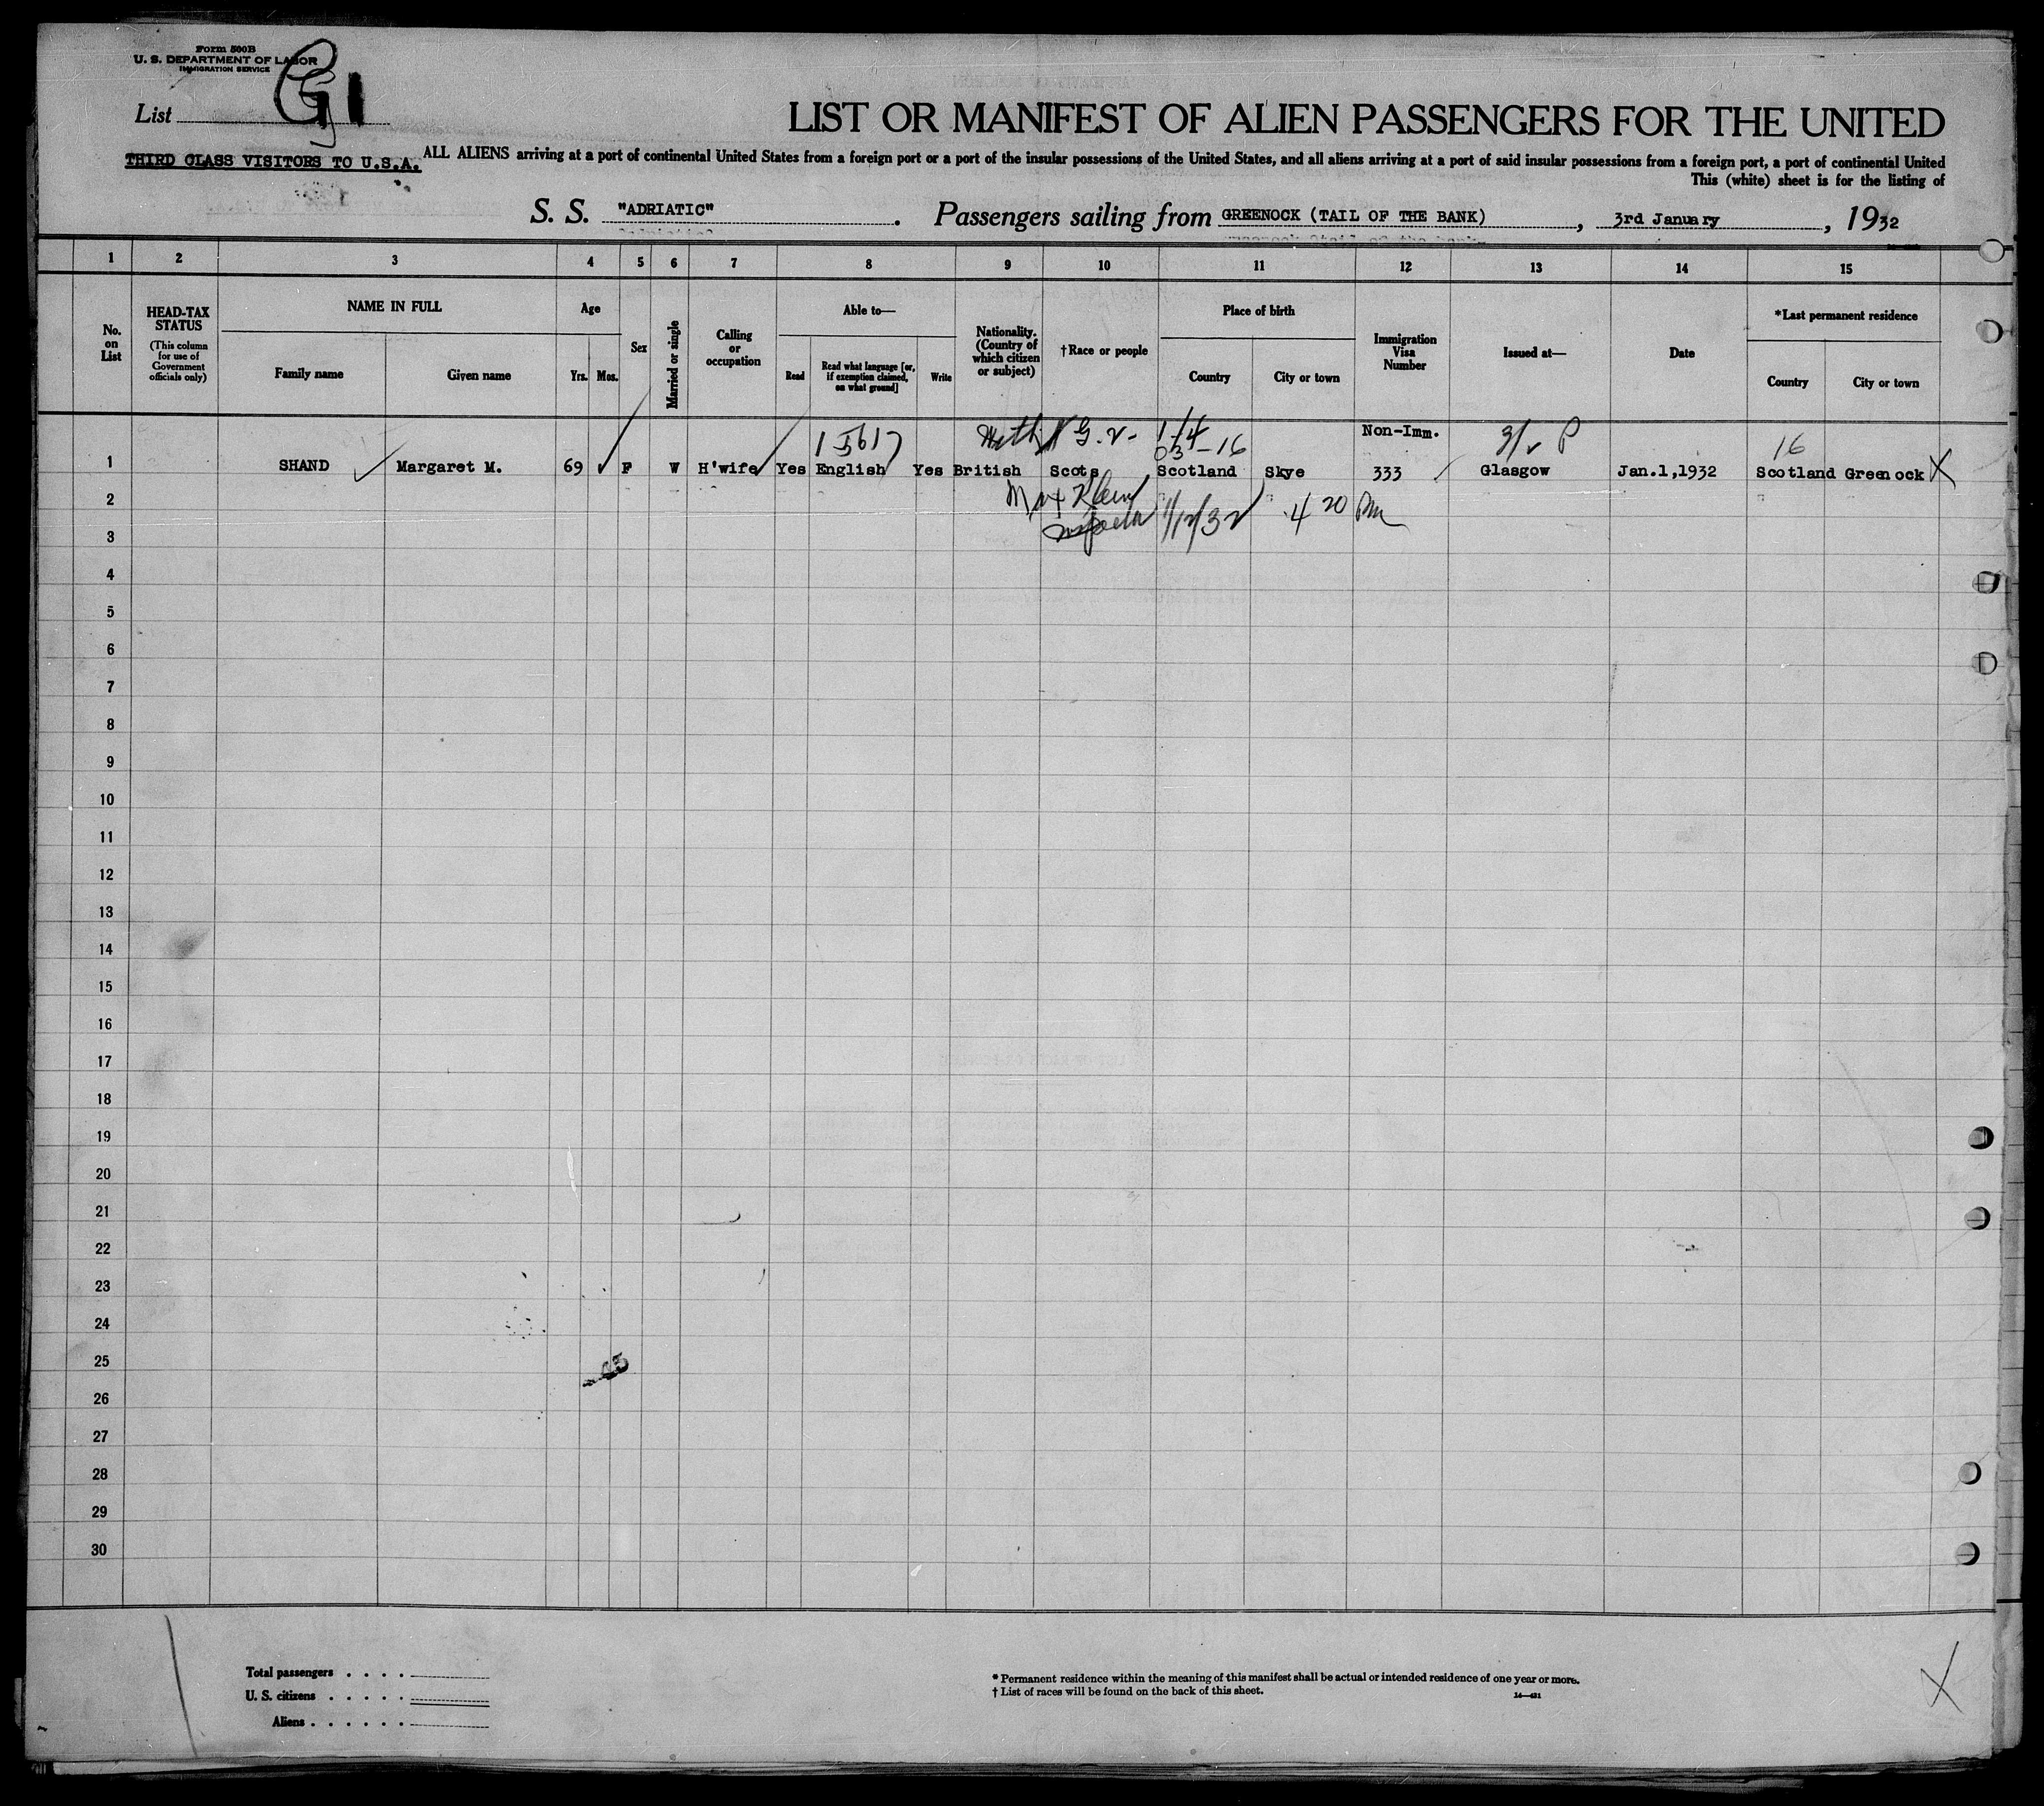 Form 500B
U. S. DEPARTMENT OF LABOR
IMMIGRATION SERVICE
List G 1
LIST OR MANIFEST OF ALIEN PASSENGERS FOR THE UNITED
THIRD CLASS VISITORS TO U.S.A.
ALL ALIENS arriving at a port of continental United States from a foreign port or a port of the insular possessions of the United States, and all aliens arriving at a port of said insular possessions from a foreign port, a port of continental United
This (white) sheet is for the listing of
S. S. "ADRIATIC". Passengers sailing from GREENOCK (TAIL OF THE BANK), 3rd January, 1932
1 2 3 4 5 6 7 8 9 10 11 12 13 14 15
No. on List
HEAD-TAX STATUS
(This column for use of Government officials only)
NAME IN FULL
Family name Given name
Age
Yrs. Mos.
Sex
Married or single
Calling or occupation
Able to—
Read
Read what language [or, if exemption claimed, on what ground]
Write
Nationality. (Country of which citizen or subject)
†Race or people
Place of birth
Country City or town
Immigration Visa Number
Issued at—
Date
*Last permanent residence
Country City or town
15617 G.V- 1/4 Non-Imm. 3/v P 16
03-16
1 SHAND Margaret M. 69 F W H'wife Yes English Yes British Scots Scotland Skye 333 Glasgow Jan.1,1932 Scotland Greenock X
2 Max Klein
3 1/12/32 4 20 Pm
4
5
6
7
8
9
10
11
12
13
14
15
16
17
18
19
20
21
22
23
24
25
26
27
28
29
30
Total passengers . . . .
U. S. citizens . . . . .
Aliens . . . . . .
* Permanent residence within the meaning of this manifest shall be actual or intended residence of one year or more.
† List of races will be found on the back of this sheet.
14—421
X